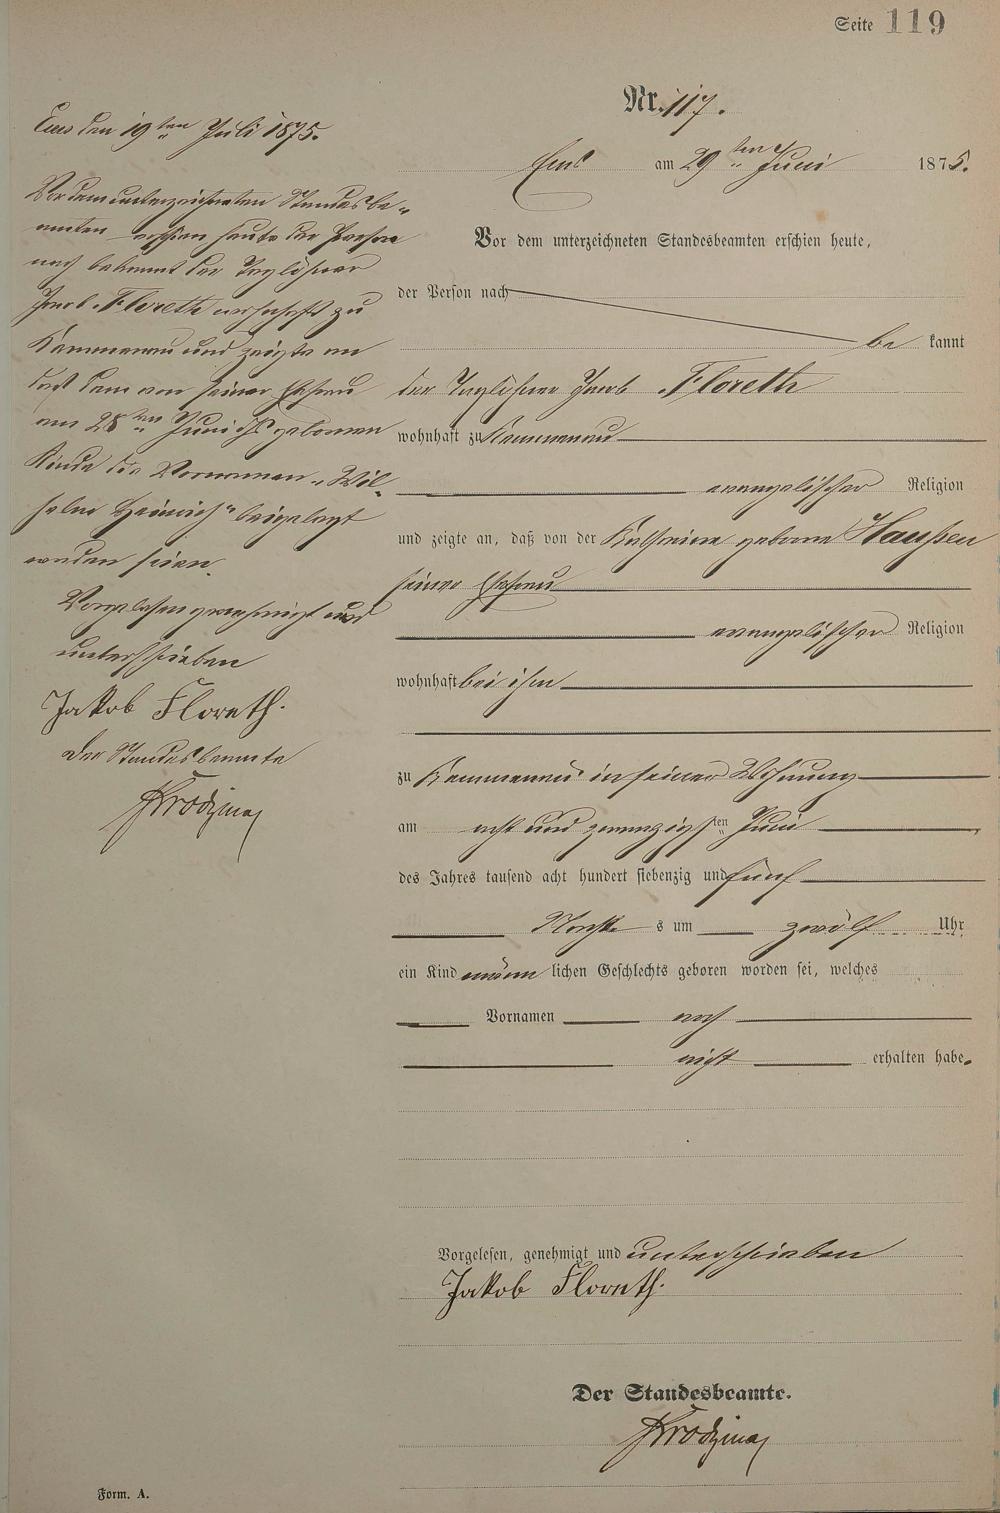 Seite 119
Nr. 117.
Ems am 29ten Juni 1875.
Vor dem unterzeichneten Standesbeamten erschien heute,
der Person nach
be kannt
der Taglöhner Jacob Floreth
wohnhaft zu Kemmenau
evangelischer Religion
und zeigte an, daß von der Katharine geborne
seiner Ehefrau
evangelischer Religion
wohnhaft bei ihm
zu Kemmenau in seiner Wohnung
am acht und zwanzigsten Juni
des Jahres tausend acht hundert siebenzig und fünf
Nachts um zwölf Uhr
ein Kind männlichen Geschlechts geboren worden sei, welches
Vornamen noch
nicht erhalten habe.
Vorgelesen, genehmigt und unterschrieben
Jakob Floreth.
Der Standesbeamte.
Ems den 19ten Juli 1875.
Vor dem unterzeichneten Standesbe-
amten erschien heute der Person
nach bekannt der Taglöhner
Jacob Floreth wohnhaft zu
Kemmenau und zeigte an
daß dem von seiner Ehefrau
am 28ten Juni geborenen
Kinde die Vornamen „Wil-
helm Heinrich" beigelegt
worden seien.
Vorgelesen genehmigt und
unterschrieben
Jakob Floreth.
Der Standesbeamte
Form. A.